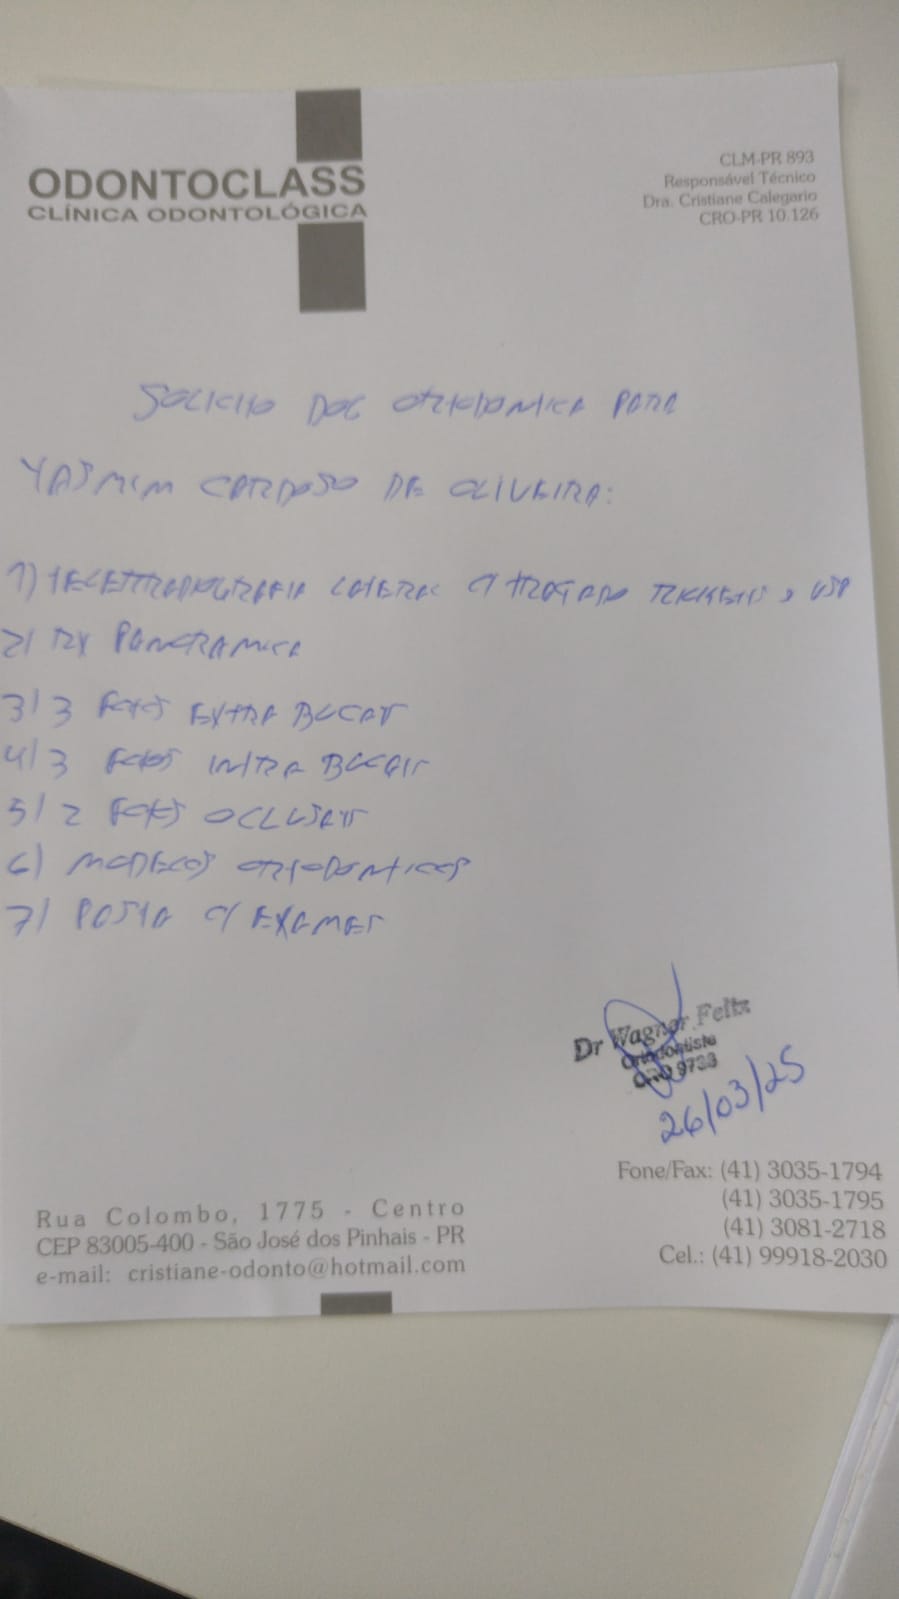 ODONTOCLASS
CLÍNICA ODONTOLÓGICA
CLM-PR 893
Responsável Técnico
Dra. Cristiane Calegario
CRO-PR 10.126
SOLICITO DOC ORTODONTICA PARA
YASMIM CARDOSO DE OLIVEIRA:
1) TELERRADIOGRAFIA LATERAL C/ TRAÇADO USP
2) RX PANORAMICA
3) 3 FOTOS EXTRA BUCAIS
4) 3 FOTOS INTRA BUCAIS
5) 2 FOTOS OCLUSAIS
6) MODELOS ORTODONTICOS
7) PASTA C/ EXAMES
Dr Wagner Felix
Ortodontista
CRO 9733
26/03/25
Rua Colombo, 1775 - Centro
CEP 83005-400 - São José dos Pinhais - PR
e-mail: cristiane-odonto@hotmail.com
Fone/Fax: (41) 3035-1794
(41) 3035-1795
(41) 3081-2718
Cel.: (41) 99918-2030